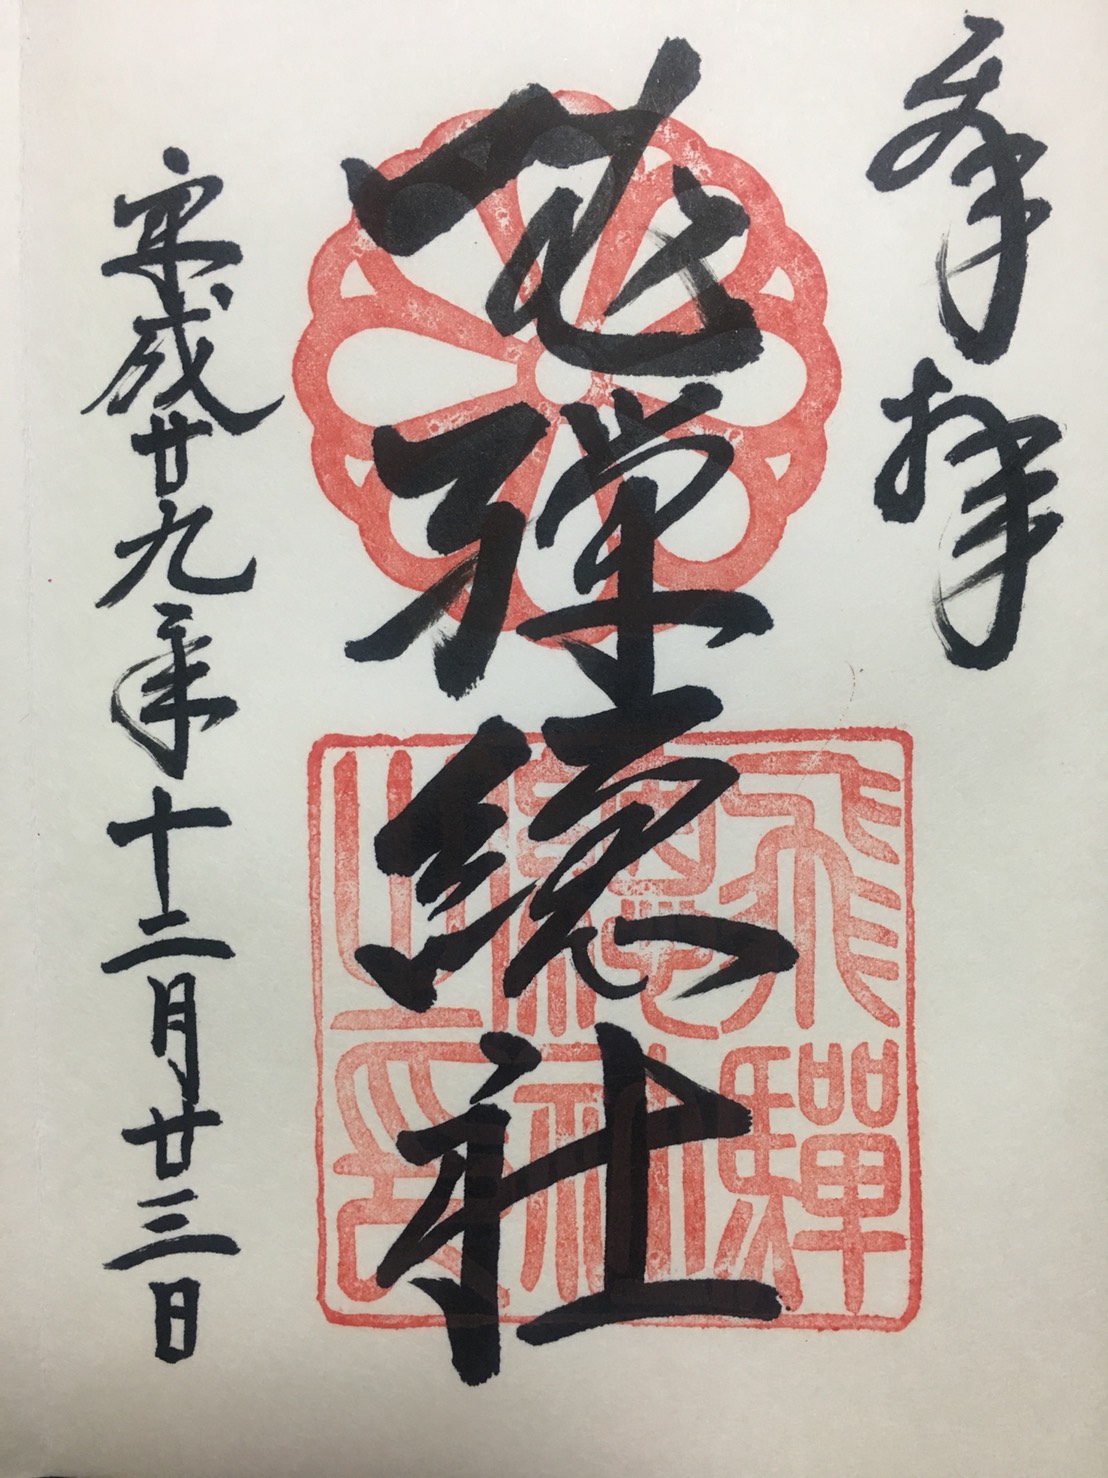 奉拝
飛騨総社
飛騨
總社
之印
平成廿九年十二月廿三日